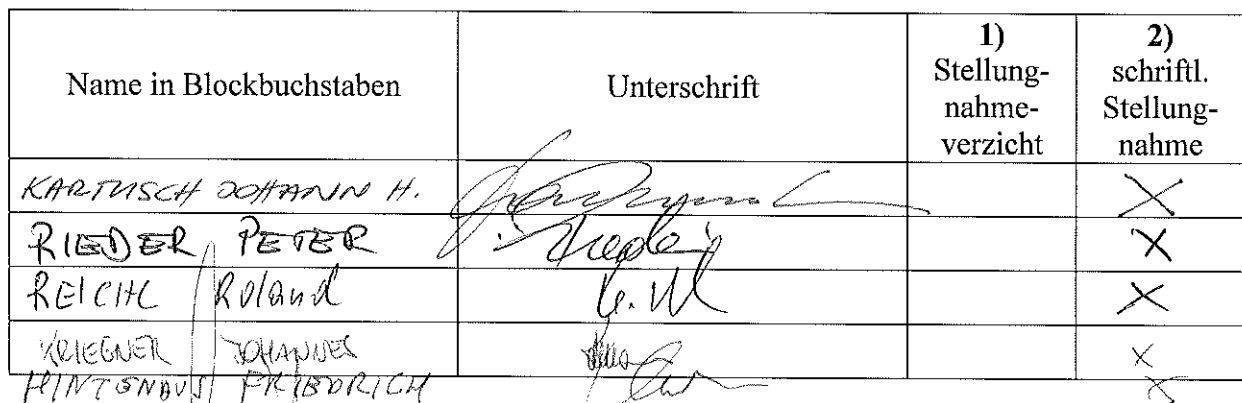 Name in Blockbuchstaben Unterschrift 1) Stellung-nahme-verzicht 2) schriftl. Stellung-nahme
KARTUSCH JOHANN H. X
RIEDER PETER X
REICHL Roland X
KRIEGNER JOHANNES X
HINTENAUS FRIEDRICH X